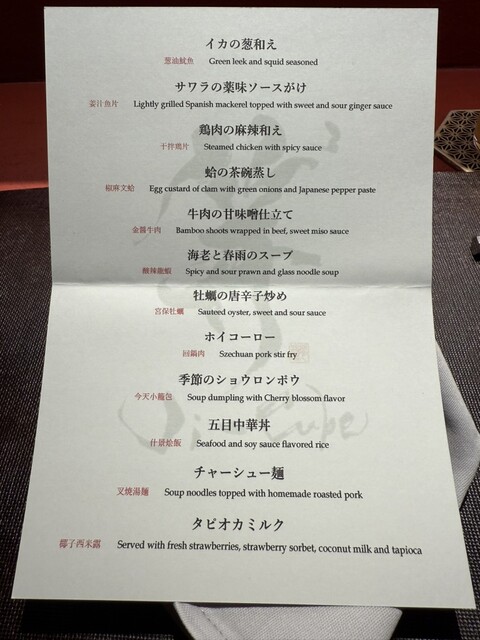 イカの葱和え
葱油魷魚 Green leek and squid seasoned
サワラの薬味ソースがけ
姜汁魚片 Lightly grilled Spanish mackerel topped with sweet and sour ginger sauce
鶏肉の麻辣和え
干拌鶏片 Steamed chicken with spicy sauce
蛤の茶碗蒸し
椒麻文蛤 Egg custard of clam with green onions and Japanese pepper paste
牛肉の甘味噌仕立て
金醤牛肉 Bamboo shoots wrapped in beef, sweet miso sauce
海老と春雨のスープ
酸辣龍蝦 Spicy and sour prawn and glass noodle soup
牡蠣の唐辛子炒め
宮保牡蠣 Sauteed oyster, sweet and sour sauce
ホイコーロー
回鍋肉 Szechuan pork stir fry
季節のショウロンポウ
今天小籠包 Soup dumpling with Cherry blossom flavor
五目中華丼
什景烩飯 Seafood and soy sauce flavored rice
チャーシュー麺
叉焼湯麺 Soup noodles topped with homemade roasted pork
タピオカミルク
椰子西米露 Served with fresh strawberries, strawberry sorbet, coconut milk and tapioca